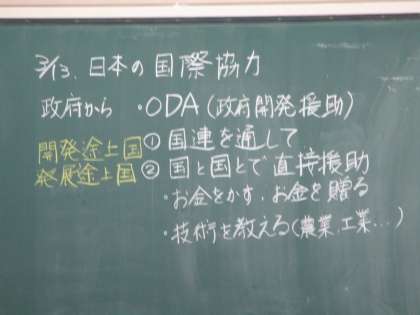 3/13. 日本の国際協力
政府から ・ODA(政府開発援助)
開発途上国 ① 国連を通して
発展途上国 ② 国と国とで直接援助
・お金をかす、お金を贈る
・技術を教える(農業、工業…)